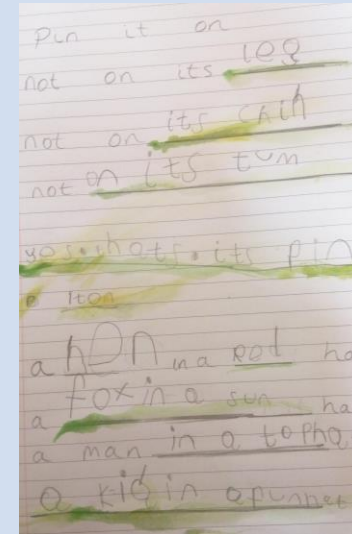 Pin it on
not on its leg
not on its chin
not on its tum
yes.thats.its pin
p Iton
a hen in a Red ha
a fox in a sun ha
a man in a topha
a kid in apunnet